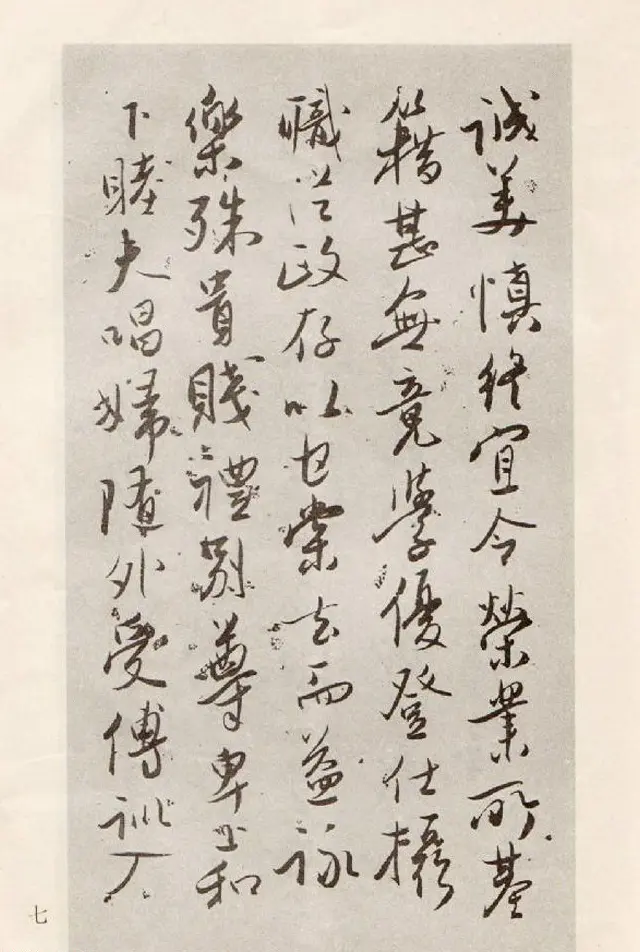 誠美慎終宜令榮業所基
籍甚無竟學優登仕攝
職從政存以甘棠去而益詠
樂殊貴賤禮別尊卑上和
下睦夫唱婦隨外受傅訓入
七